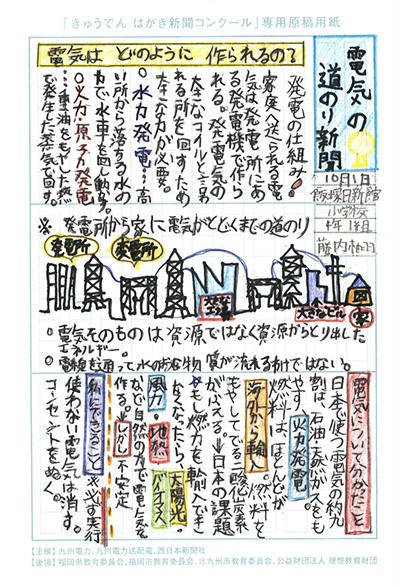 「きゅうでん はがき新聞コンクール」専用原稿用紙
電気の
道のり新聞
10月1日
飯塚日新館
小学校
4年1組
電気は どのように 作られるの?
発電の仕組み!
家庭へ送られる電
気は発電所にあ
る発電機で作ら
れる。発電の
大きなコイルと言わ
れる所を回すため
大きな力が必要。
○水力発電…高
い所から落ちる水の
力で水車を回し動かす。
○火力・原子力発電
…重油をもやした熱
で発生した蒸気で回す。
※発電所から家に電気がとどくまでの道のり
発電所
変電所
大きなビル
家
○電気そのものは資源ではなく資源からとり出した
エネルギー。
○電線を通って水のような物質が流れる訳ではない。
電気について分かったこと
日本で使う電気の約九
割は、石油・天然ガスをも
やす火力発電
燃料は、ほとんどが
海外から輸入 燃料を
もやしてでる二酸化炭素
がふえる⇒日本の課題
もし燃力を輸入でき
なくなったら
風力・地熱・太陽光・
バイオマス
など自然の力で電気を
作る。しかし不安定
私にできること★必ず実行
使わない電気を消す。
コンセントをぬく。
【主催】九州電力、九州電力送配電、西日本新聞社
【後援】福岡県教育委員会、福岡市教育委員会、北九州市教育委員会、公益財団法人 理想教育財団